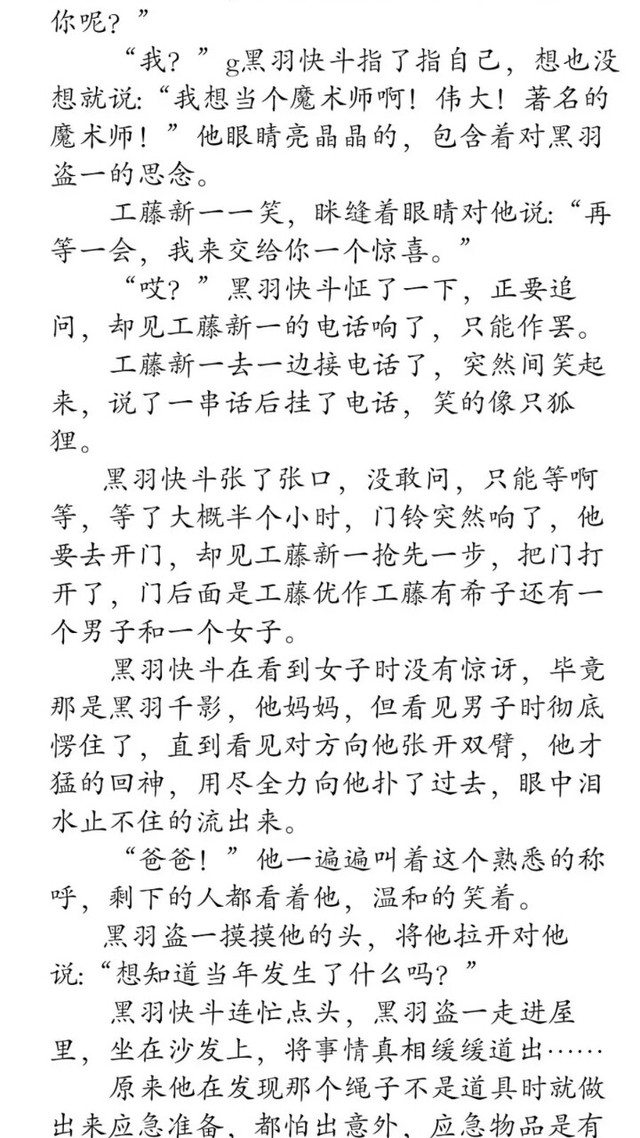 你呢？”
“我？”g黑羽快斗指了指自己，想也没
想就说:“我想当个魔术师啊！伟大！著名的
魔术师！”他眼睛亮晶晶的，包含着对黑羽
盗一的思念。
工藤新一一笑，眯缝着眼睛对他说:“再
等一会，我来交给你一个惊喜。”
“哎？”黑羽快斗怔了一下，正要追
问，却见工藤新一的电话响了，只能作罢。
工藤新一去一边接电话了，突然间笑起
来，说了一串话后挂了电话，笑的像只狐
狸。
黑羽快斗张了张口，没敢问，只能等啊
等，等了大概半个小时，门铃突然响了，他
要去开门，却见工藤新一抢先一步，把门打
开了，门后面是工藤优作工藤有希子还有一
个男子和一个女子。
黑羽快斗在看到女子时没有惊讶，毕竟
那是黑羽千影，他妈妈，但看见男子时彻底
愣住了，直到看见对方向他张开双臂，他才
猛的回神，用尽全力向他扑了过去，眼中泪
水止不住的流出来。
“爸爸！”他一遍遍叫着这个熟悉的称
呼，剩下的人都看着他，温和的笑着。
黑羽盗一摸摸他的头，将他拉开对他
说:“想知道当年发生了什么吗？”
黑羽快斗连忙点头，黑羽盗一走进屋
里，坐在沙发上，将事情真相缓缓道出……
原来他在发现那个绳子不是道具时就做
出来应急准备，都怕出意外，应急物品是有